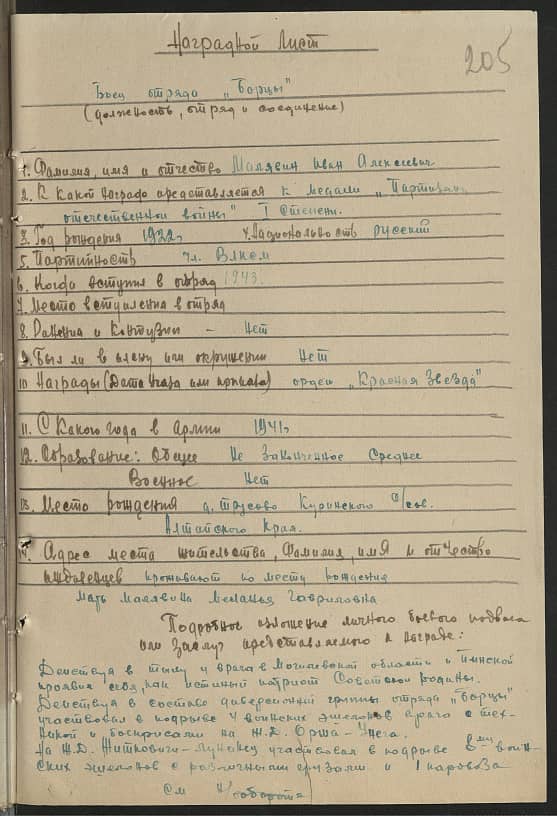 205
Наградной лист
Боец отряда „Борцы"
(должность, отряд и соединение)
1. Фамилия, имя и отчество Малявин Иван Алексеевич
2. К какой награде представляется к медали „Партизану
отечественной войны" I степени.
3. Год рождения 1922г 4. Национальность русский
5. Партийность чл. Влксм
6. Когда вступил в отряд 1943.
7. Место вступления в отряд
8. Ранения и контузии - нет
9. Был ли в плену или окружении нет
10 Награды (Дата указа или приказа) орден „Красная Звезда"
11. С какого года в армии 1941г
12. Образование: Общее не законченное среднее
Военное нет
13. Место рождения д. Трусово Куринского с/сов.
Алтайского края.
14. Адрес места жительства, фамилия, имя и отчество
иждивенцев проживают по месту рождения
Мать Малявина Меланья Гавриловна
Подробное изложение личного боевого подвига
или заслуг представляемого к награде:
Действуя в тылу у врага в Могилевской области и Пинской
проявил себя, как истиный патриот Советской родины.
Действуя в составе диверсионной группы отряда „Борцы"
участвовал в подрыве 4 воинских эшелонов врага с тех-
никой и боеприпасами на Ж.Д. Орша-Унеча.
На Ж.Д. Житковичи-Лунинец участвовал в подрыве 8ми воин-
ских эшелонов с различными грузами и 1 паровоза
См н/обороте